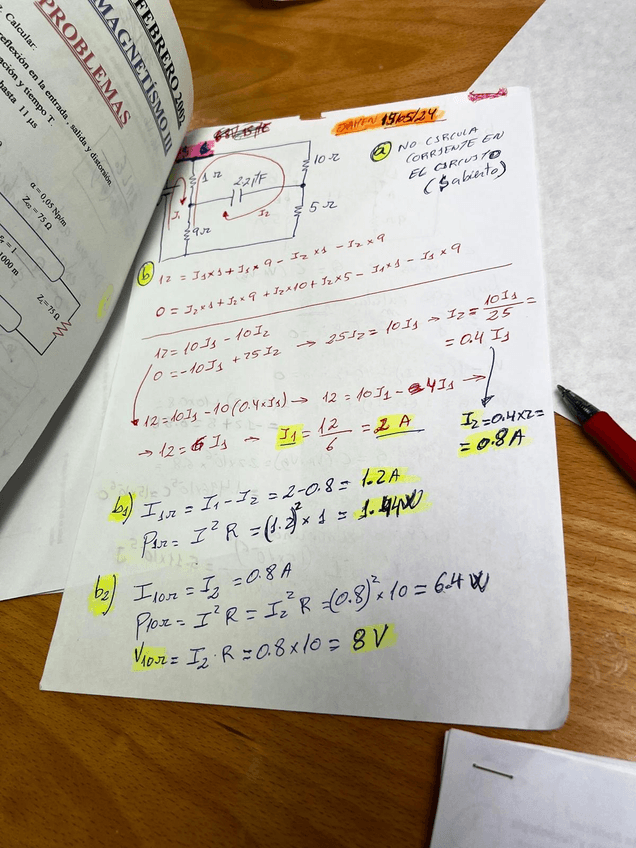 FEBRERO-2003
MAGNETÍSMO III
PROBLEMAS
. Calcular:
reflexión en la entrada, salida y distorsión.
ación y tiempo T.
hasta 11 μs
α = 0,05 Np/m
Z₀₂ = 75 Ω
= 1
1000 m
Z = 75 Ω
EXAMEN 15/05/24
1 Ω
2.2 µF
10 Ω
5 Ω
9 Ω
I₁
I₂
a NO CIRCULA
CORRIENTE EN
EL CIRCUITO
(S abierto)
b 12 = I₁×1 + I₁×9 - I₂×1 - I₂×9
0 = I₂×1 + I₂×9 + I₂×10 + I₂×5 - I₁×1 - I₁×9
12 = 10I₁ - 10I₂
0 = -10I₁ + 25I₂ → 25I₂ = 10I₁ → I₂ = 10I₁/25 =
= 0.4 I₁
12 = 10I₁ - 10(0.4×I₁) → 12 = 10I₁ - 4I₁ →
→ 12 = 6 I₁ → I₁ = 12/6 = 2 A
I₂ = 0.4×2 =
= 0.8 A
b₁) I₁Ω = I₁ - I₂ = 2 - 0.8 = 1.2 A
P₁Ω = I² R = (1.2)² × 1 = 1.44 W
b₂) I₁₀Ω = I₂ = 0.8 A
P₁₀Ω = I² R = I₂² R = (0.8)² × 10 = 6.4 W
V₁₀Ω = I₂ · R = 0.8 × 10 = 8 V